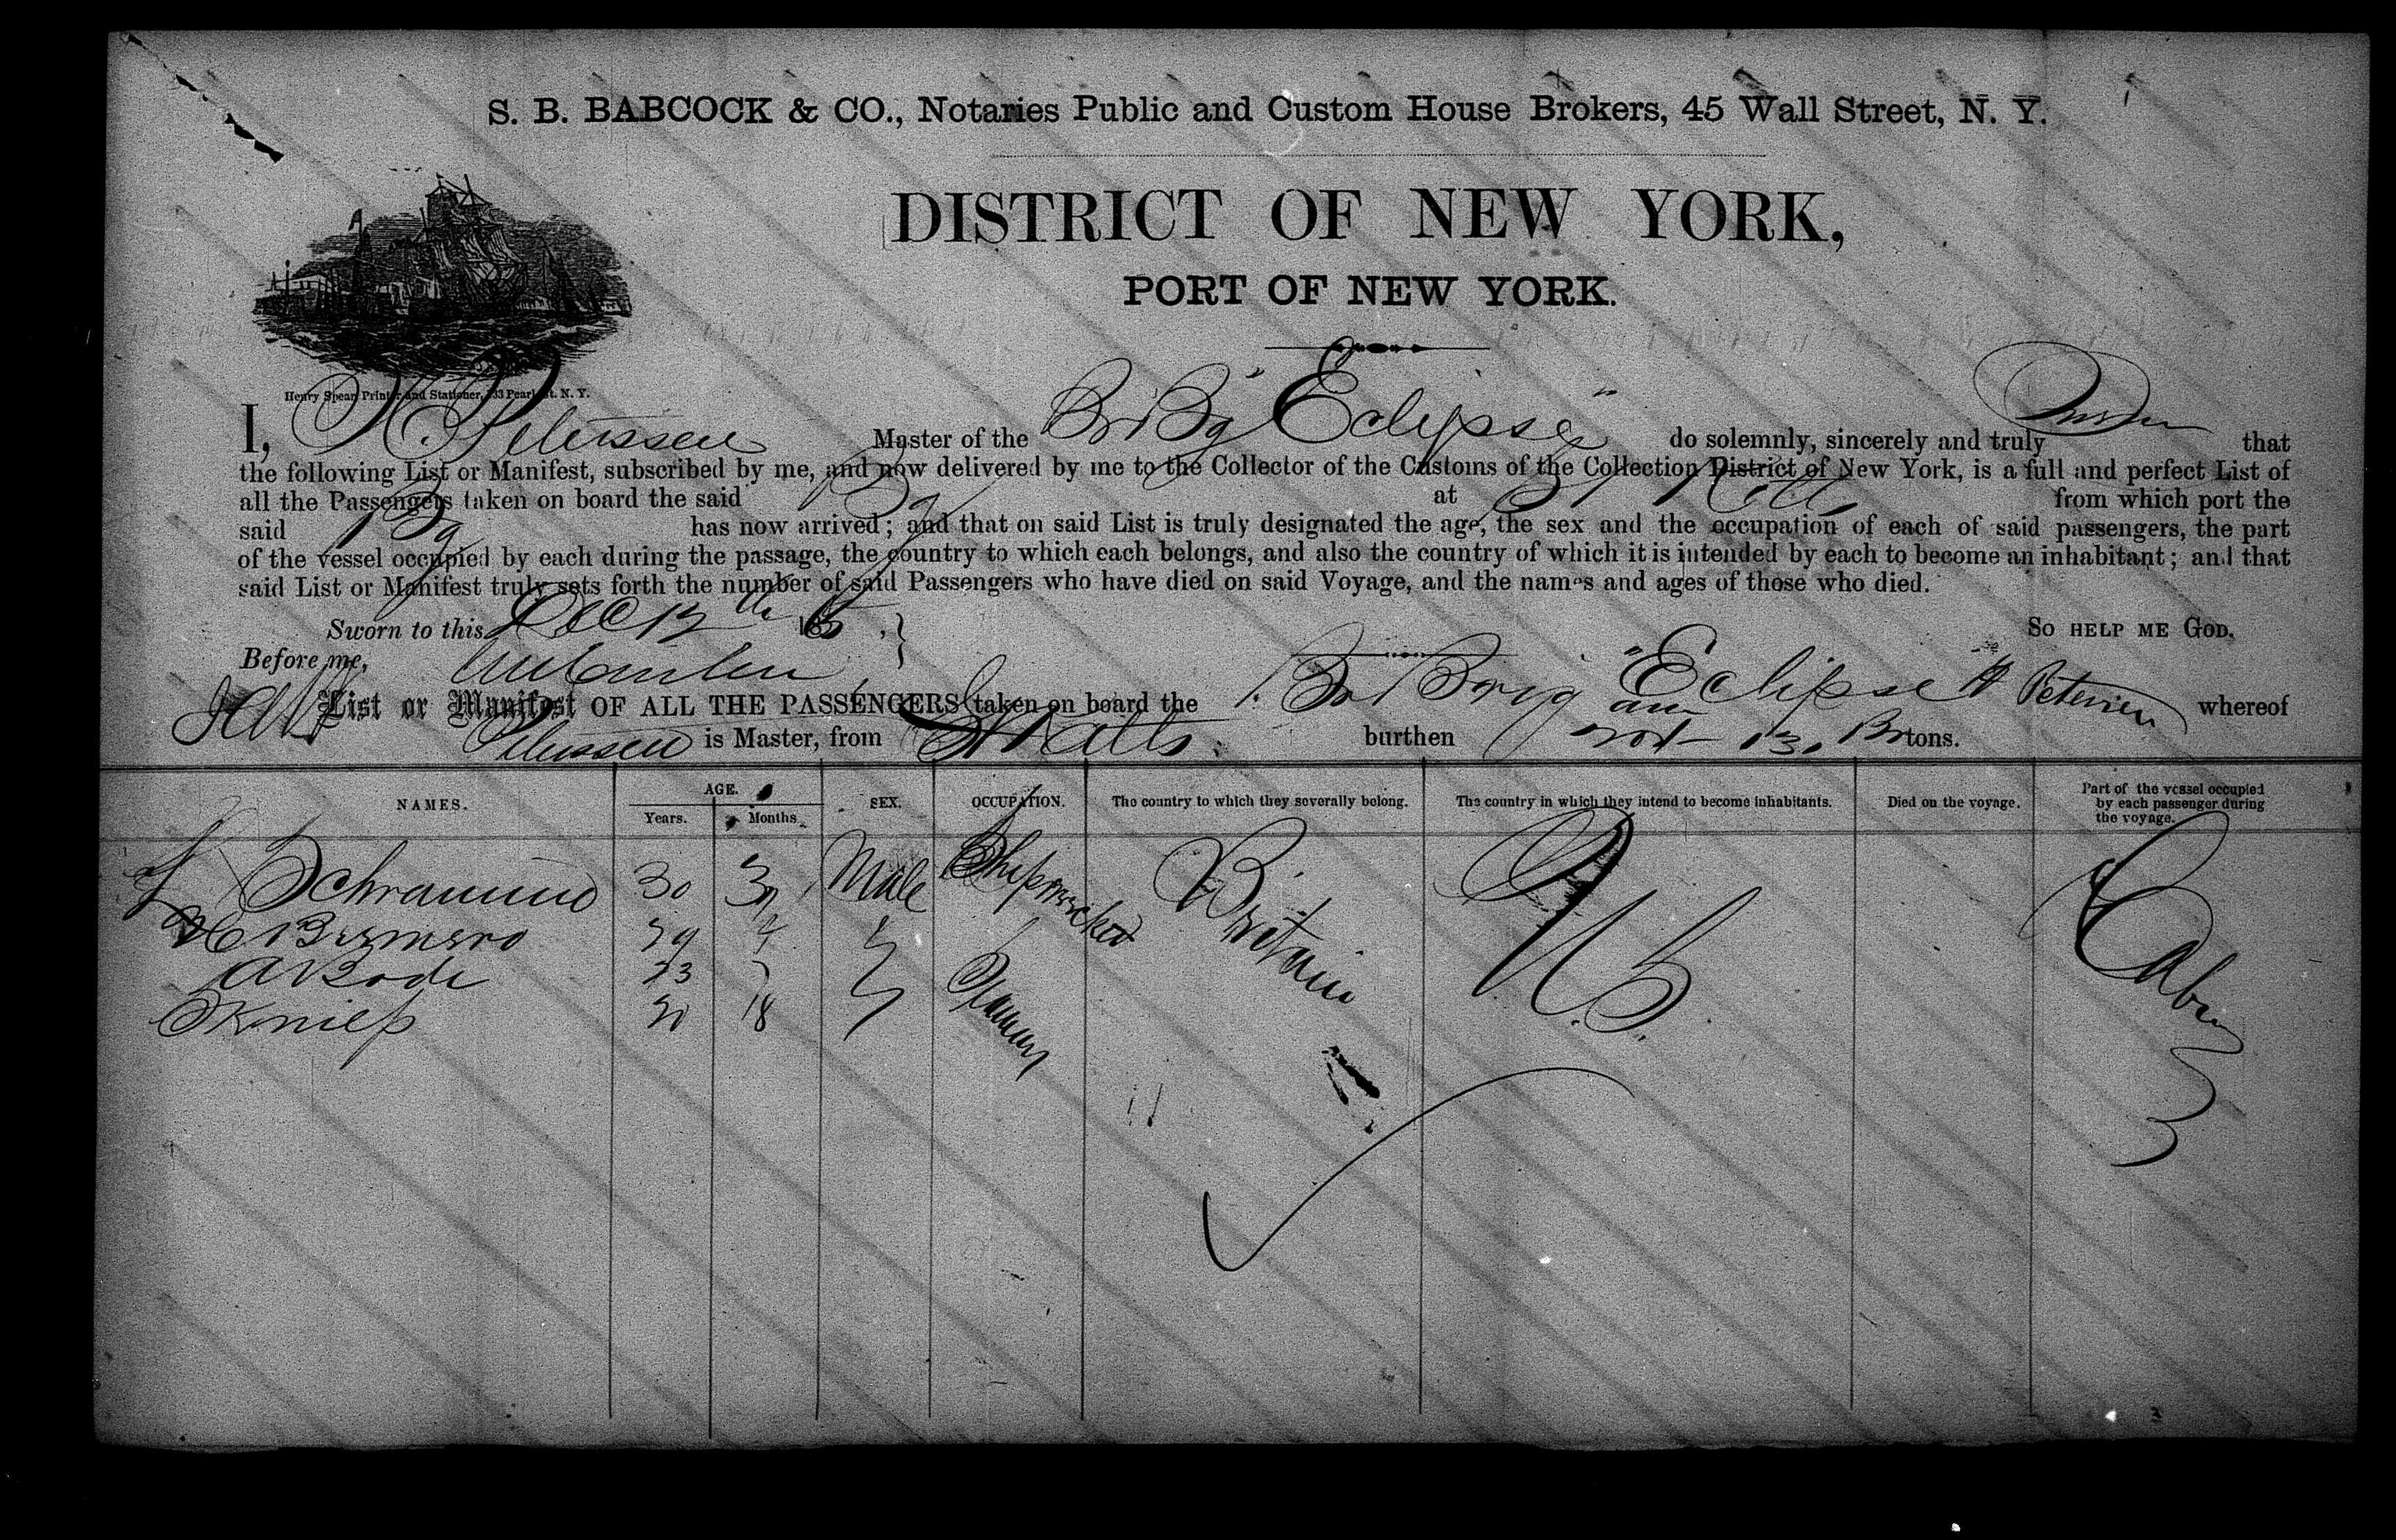 S. B. BABCOCK & CO., Notaries Public and Custom House Brokers, 45 Wall Street, N. Y.
DISTRICT OF NEW YORK,
PORT OF NEW YORK.
Henry Spear, Printer and Stationer, 133 Pearl St. N. Y.
I, H. Petersen Master of the Br Bg "Eclipse" do solemnly, sincerely and truly that
the following List or Manifest, subscribed by me, and now delivered by me to the Collector of the Customs of the Collection District of New York, is a full and perfect List of
all the Passengers taken on board the said Bg at St Kitts from which port the
said Bg has now arrived; and that on said List is truly designated the age, the sex and the occupation of each of said passengers, the part
of the vessel occupied by each during the passage, the country to which each belongs, and also the country of which it is intended by each to become an inhabitant; and that
said List or Manifest truly sets forth the number of said Passengers who have died on said Voyage, and the names and ages of those who died.
Sworn to this Dec 12th 186 SO HELP ME GOD.
Before me,
List or Manifest OF ALL THE PASSENGERS taken on board the Br Brig "Eclipse" H Petersen whereof
Petersen is Master, from St Kitts burthen tons.
NAMES. AGE. Years. Months. SEX. OCCUPATION. The country to which they severally belong. The country in which they intend to become inhabitants. Died on the voyage. Part of the vessel occupied by each passenger during the voyage.
Schramm 30 Male Shipwrecked Britain U.S. Cabin
29
A Bode 23 Seamen
Kniep 18